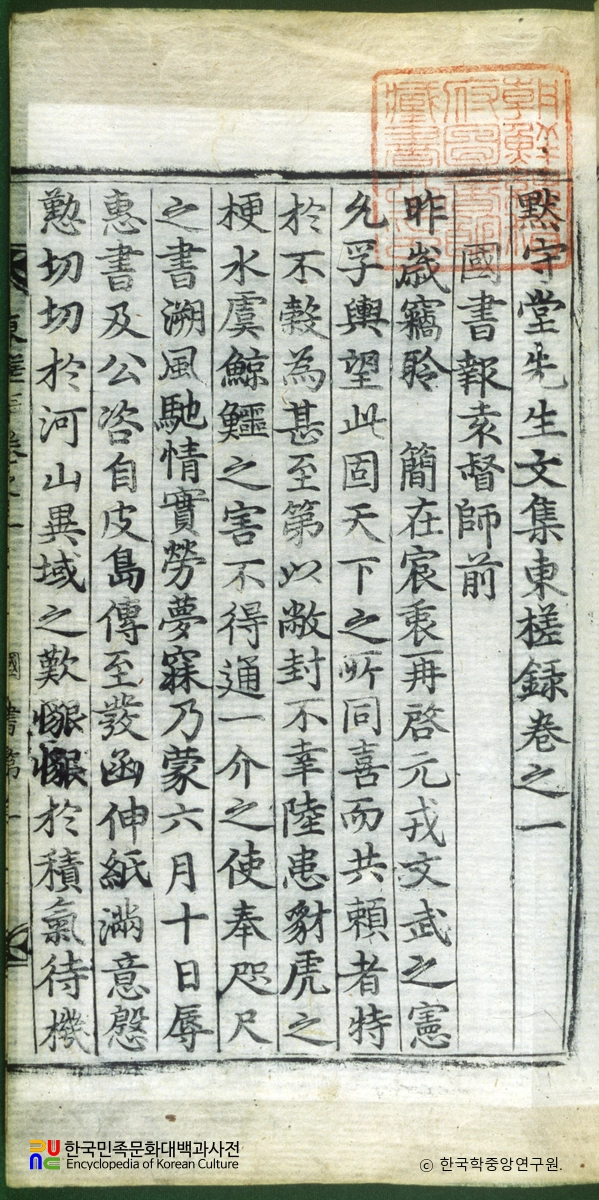 默守堂先生文集東槎錄卷之一
國書報袁督師前
昨歲竊聆 簡在宸衷再啓元戎文武之憲
允孚輿望此固天下之所同喜而共賴者特
於不穀為甚至第以敝封不幸陸患豺虎之
梗水虞鯨鱷之害不得通一介之使奉咫尺
之書溯風馳情實勞夢寐乃蒙六月十日辱
惠書及公咨自皮島傳至發函伸紙滿意慇
懃切切於河山異域之歎懇懇於積氣待機
한국민족문화대백과사전
Encyclopedia of Korean Culture
© 한국학중앙연구원.